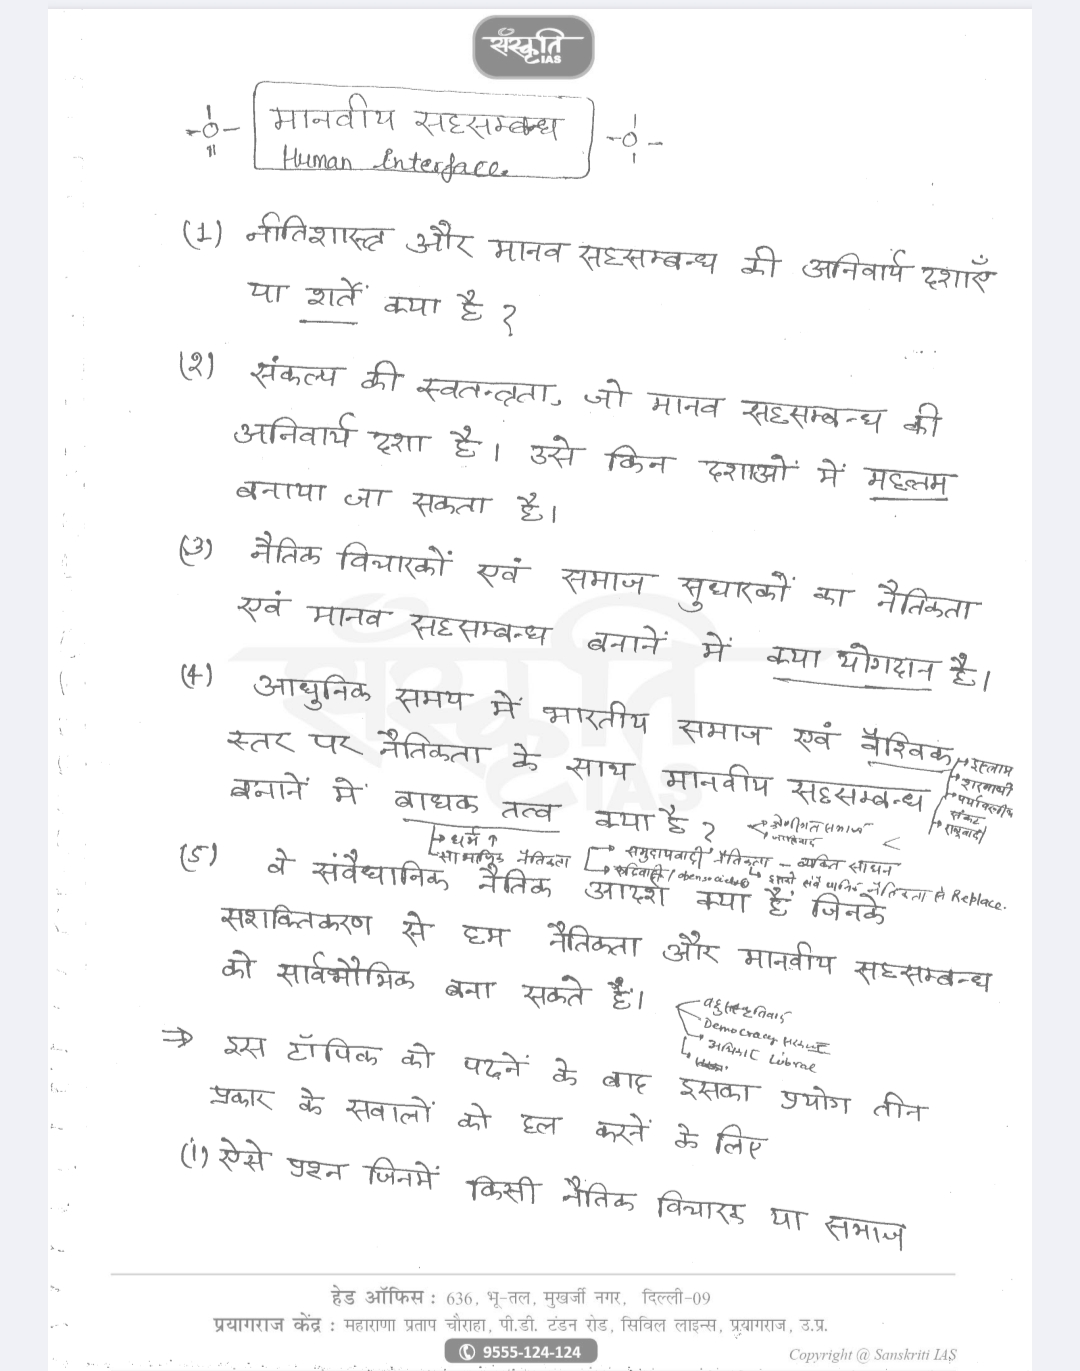 संस्कृति
IAS
मानवीय सहसम्बन्ध
Human interface.
(1) नीतिशास्त्र और मानव सहसम्बन्ध की अनिवार्य दशाएँ
या शर्तें क्या है ?
(2) संकल्प की स्वतन्त्रता, जो मानव सहसम्बन्ध की
अनिवार्य दशा है। उसे किन दशाओं में महत्तम
बनाया जा सकता है।
(3) नैतिक विचारकों एवं समाज सुधारकों का नैतिकता
एवं मानव सहसम्बन्ध बनानें में क्या योगदान है।
(4) आधुनिक समय में भारतीय समाज एवं वैश्विक
स्तर पर नैतिकता के साथ मानवीय सहसम्बन्ध
बनानें में बाधक तत्व क्या है ?
इस्लाम
शरणार्थी
पर्यावरणीय
संकट
राष्ट्रवाद
श्रेणीगत समाज
जातिवाद
धर्म
सामाजिक नैतिकता
समुदायवादी नैतिकता - व्यक्ति साधन
रूढ़िवादी
इसको संवैधानिक नैतिकता से Replace.
(5) वे संवैधानिक नैतिक आदर्श क्या हैं जिनके
सशक्तिकरण से हम नैतिकता और मानवीय सहसम्बन्ध
को सार्वभौमिक बना सकते हैं।
बहुसंस्कृतिवाद
Democracy
अधिकार Librae
⇒ इस टॉपिक को पढ़नें के बाद इसका प्रयोग तीन
प्रकार के सवालों को हल करनें के लिए
(i) ऐसे प्रश्न जिनमें किसी नैतिक विचारक या समाज
हेड ऑफिस : 636, भू-तल, मुखर्जी नगर, दिल्ली-09
प्रयागराज केंद्र : महाराणा प्रताप चौराहा, पी.डी. टंडन रोड, सिविल लाइन्स, प्रयागराज, उ.प्र.
9555-124-124
Copyright @ Sanskriti IAS